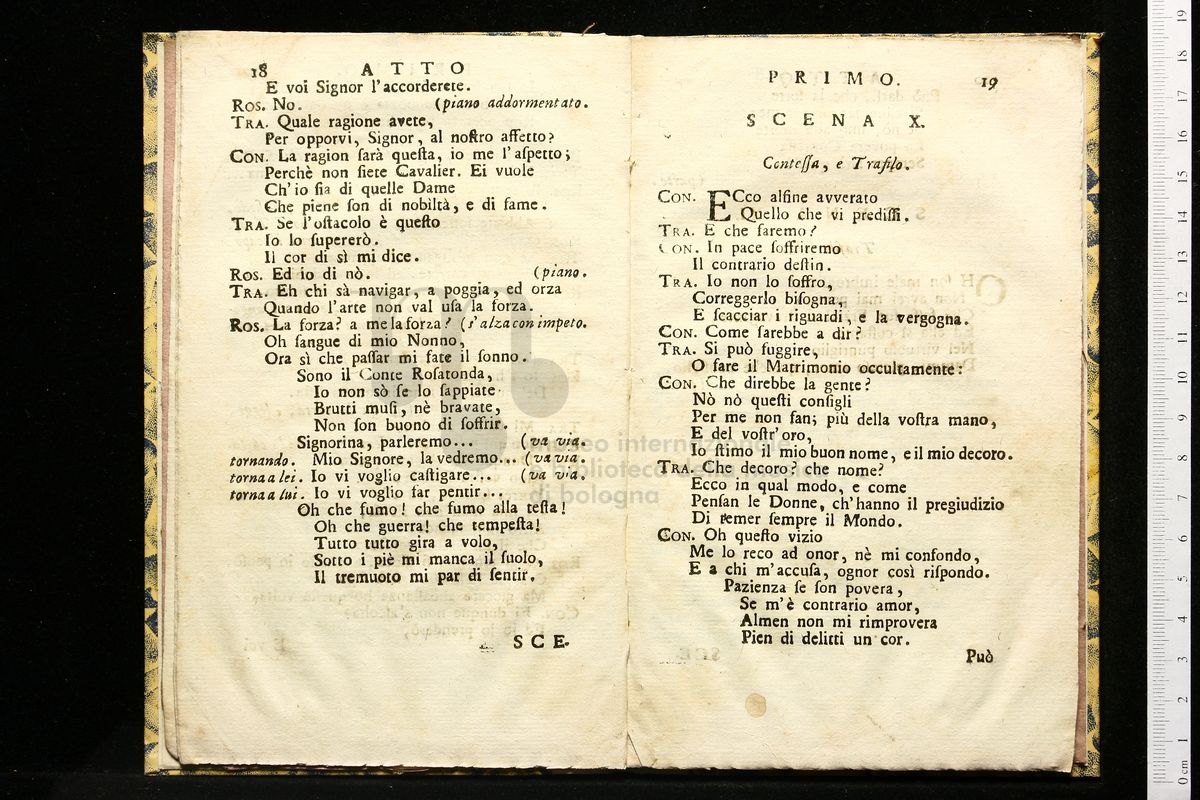 18 ATTO
E voi Signor l'accorderete.
ROS. No. (piano addormentato.
TRA. Quale ragione avete,
Per opporvi, Signor, al noſtro affetto?
CON. La ragion ſarà queſta, io me l'aſpetto;
Perchè non ſiete Cavalier. Ei vuole
Ch'io ſia di quelle Dame
Che piene ſon di nobiltà, e di fame.
TRA. Se l'oſtacolo è queſto
Io lo ſupererò.
Il cor di sì mi dice.
ROS. Ed io di nò. (piano.
TRA. Eh chi sà navigar, a poggia, ed orza
Quando l'arte non val uſa la forza.
ROS. La forza? a me la forza? (s'alza con impeto.
Oh ſangue di mio Nonno,
Ora sì che paſſar mi fate il ſonno.
Sono il Conte Roſatonda,
Io non sò ſe lo ſappiate
Brutti muſi, nè bravate,
Non ſon buono di ſoffrir.
Signorina, parleremo... (va via.
tornando. Mio Signore, la vedremo... (va via.
torna a lei. Io vi voglio caſtigare... (va via.
torna a lui. Io vi voglio far pentir...
Oh che fumo! che fumo alla teſta!
Oh che guerra! che tempeſta!
Tutto tutto gira a volo,
Sotto i piè mi manca il ſuolo,
Il tremuoto mi par di ſentir.
SCE.
PRIMO. 19
SCENA X.
Conteſſa, e Trafilo.
CON. ECco alfine avverato
Quello che vi prediſſi.
TRA. E che faremo?
CON. In pace ſoffriremo
Il contrario deſtin.
TRA. Io non lo ſoffro,
Correggerlo biſogna,
E ſcacciar i riguardi, e la vergogna.
CON. Come ſarebbe a dir?
TRA. Si può fuggire,
O fare il Matrimonio occultamente:
CON. Che direbbe la gente?
Nò nò queſti conſigli
Per me non fan; più della voſtra mano,
E del voſtr'oro,
Io ſtimo il mio buon nome, e il mio decoro.
TRA. Che decoro? che nome?
Ecco in qual modo, e come
Penſan le Donne, ch'hanno il pregiudizio
Di temer ſempre il Mondo.
CON. Oh queſto vizio
Me lo reco ad onor, nè mi confondo,
E a chi m'accuſa, ognor così riſpondo.
Pazienza ſe ſon povera,
Se m'è contrario amor,
Almen non mi rimprovera
Pien di delitti un cor.
Può
museo internazionale
e biblioteca della musica
di bologna